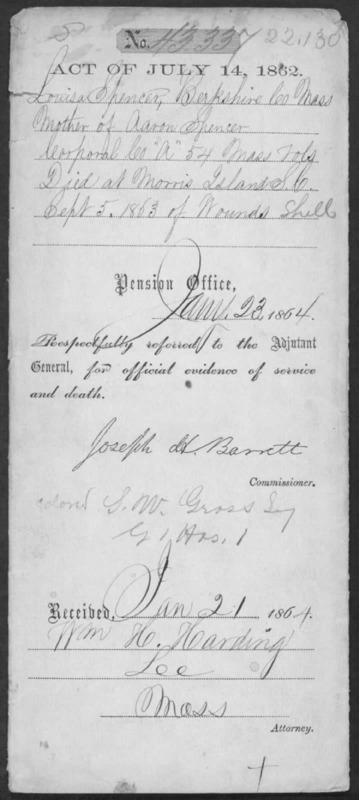 No. 43.337 22.130
ACT OF JULY 14, 1862.
Louisa Spencer, Berkshire Co Mass
Mother of Aaron Spencer
Corporal Co "A" 54 Mass Vols
Died at Morris Island S.C.
Sept 5. 1863 of Wounds Shell
Pension Office,
Jany. 23, 1864.
Respectfully referred to the Adjutant
General, for official evidence of service
and death.
Joseph H. Barrett
Commissioner.
colored S. W. Gross
Hos. 1
Received, Jan 21 1864.
Wm H. Harding
Lee
Mass
Attorney.